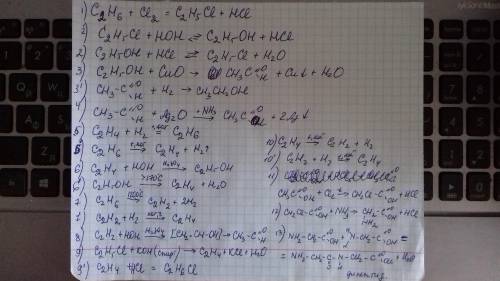 1) C₂H₆ + Cl₂ = C₂H₅Cl + HCl
2) C₂H₅Cl + HOH ⇌ C₂H₅OH + HCl
2) C₂H₅OH + HCl ⇌ C₂H₅Cl + H₂O
3) C₂H₅OH + CuO → CH₃C =O -H + Cu↓ + H₂O
3') CH₃-C =O -H + H₂ → CH₃CH₂OH
4) CH₃-C =O -H + Ag₂O +NH₃→ CH₃C =O + 2Ag↓
5 C₂H₄ + H₂ = C₂H₆
5 C₂H₆ → C₂H₄ + H₂↑
6 C₂H₄ + HOH H₂SO₄→ C₂H₅OH
6' C₂H₅OH → C₂H₄ + H₂O
7 C₂H₆ → C₂H₂ + 2H₂
7 C₂H₂ + H₂ → C₂H₄
8 C₂H₂ + HOH → [CH₂=CH-OH] → CH₃-C =O -H
9 C₂H₅Cl + KOH (спирт) → C₂H₄ + KCl + H₂O
9' C₂H₄ + HCl = C₂H₅Cl
10) C₂H₄ → C₂H₂ + H₂
10' C₂H₂ + H₂ → C₂H₄
11)
CH₃C =O -OH + Cl₂ → CH₂Cl-C =O -OH + HCl
12) CH₂Cl-C =O -OH + NH₃ → CH₂-C =O -OH NH₂ + HCl
13) NH₂-CH₂-C =O -OH + H N-CH₂-C =O -OH =
= NH₂-CH₂-C-N-CH₂-C =O -OH + H₂O
дипептид